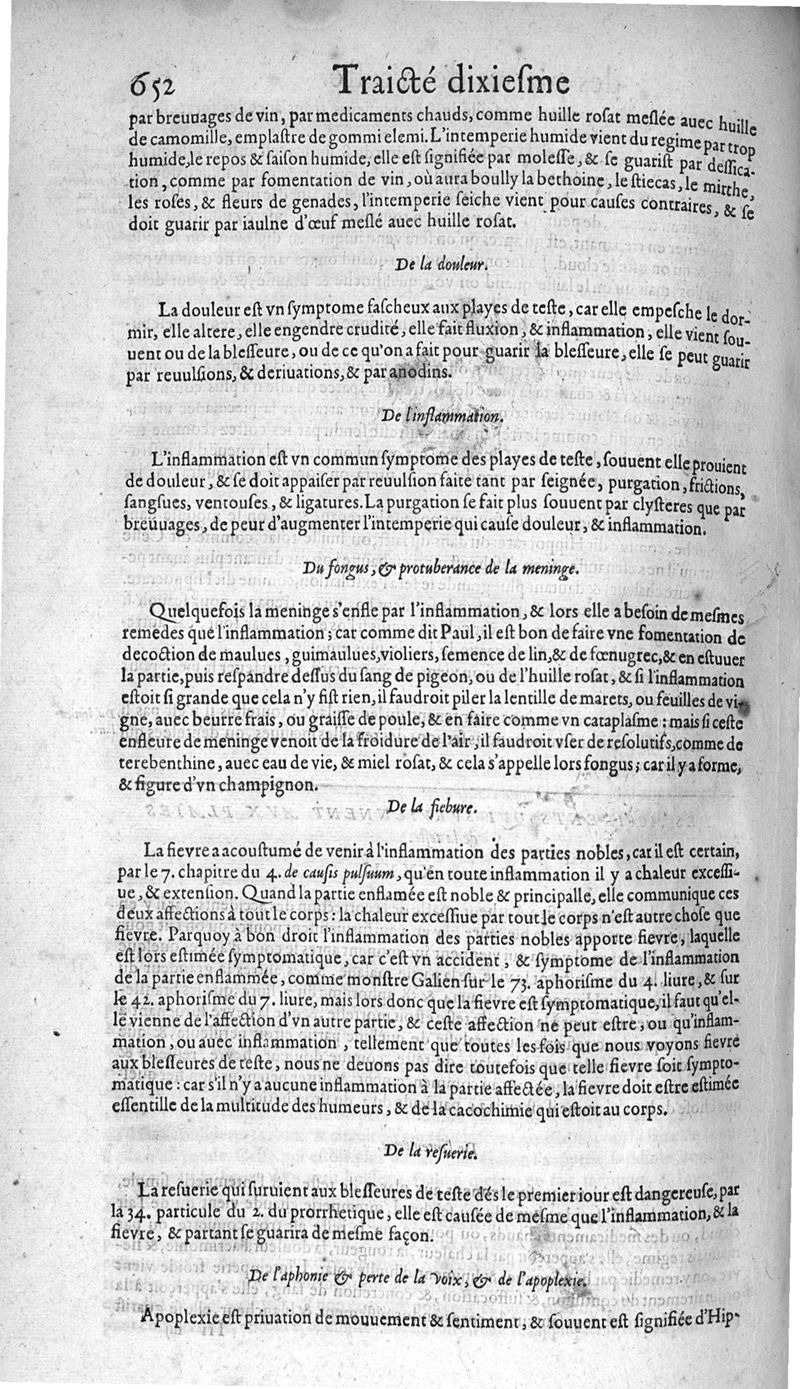 652 Traicté dixiesme
par breuuages de vin, par medicaments chauds, comme huille rosat meslée auec huille
de camomille, emplastre de gommi elemi. L'intemperie humide vient du regime par trop
humide, le repos & saison humide, elle est signifiée par molesse, & se guarist par dessica-
tion, comme par fomentation de vin, où aura boully la bethoine, le stiecas, le mirthe,
les roses, & fleurs de genades, l'intemperie seiche vient pour causes contraires, & se
doit guarir par iaulne d'œuf meslé auec huille rosat.
De la douleur.
La douleur est vn symptome fascheux aux playes de teste, car elle empesche le dor-
mir, elle altere, elle engendre crudité, elle fait fluxion, & inflammation, elle vient sou-
uent ou de la blesseure, ou de ce qu'on a fait pour guarir la blesseure, elle se peut guarir
par reuulsions, & deriuations, & par anodins.
De l'inflammation.
L'inflammation est vn commun symptome des playes de teste, souuent elle prouient
de douleur, & se doit appaiser par reuulsion faite tant par seignée, purgation, frictions,
sangsues, ventouses, & ligatures. La purgation se fait plus souuent par clysteres que par
breuuages, de peur d'augmenter l'intemperie qui cause douleur, & inflammation.
Du fongus, & protuberance de la meninge.
Quelquefois la meninge s'enfle par l'inflammation, & lors elle a besoin de mesmes
remedes que l'inflammation; car comme dit Paul, il est bon de faire vne fomentation de
decoction de maulues, guimaulues, violiers, semence de lin, & de fœnugrec, & en estuuer
la partie, puis respandre dessus du sang de pigeon, ou de l'huille rosat, & si l'inflammation
estoit si grande que cela n'y fist rien, il faudroit piler la lentille de marets, ou feuilles de vi-
gne, auec beurre frais, ou graisse de poule, & en faire comme vn cataplasme: mais si ceste
enfleure de meninge venoit de la froidure de l'air, il faudroit vser de resolutifs, comme de
terebenthine, auec eau de vie, & miel rosat, & cela s'appelle lors fongus; car il y a forme,
& figure d'vn champignon.
De la fiebure.
La fievre a acoustumé de venir à l'inflammation des parties nobles, car il est certain,
par le 7. chapitre du 4. de causis pulsuum, qu'en toute inflammation il y a chaleur excessi-
ue, & extension. Quand la partie enflamée est noble & principalle, elle communique ces
deux affections à tout le corps: la chaleur excessiue par tout le corps n'est autre chose que
fievre. Parquoy à bon droit l'inflammation des parties nobles apporte fievre, laquelle
est lors estimée symptomatique, car c'est vn accident, & symptome de l'inflammation
de la partie enflammée, comme monstre Galien sur le 73. aphorisme du 4. liure, & sur
le 42. aphorisme du 7. liure, mais lors donc que la fievre est symptomatique, il faut qu'el-
le vienne de l'affection d'vn autre partie, & ceste affection ne peut estre, ou qu'inflam-
mation, ou auec inflammation, tellement que toutes les fois que nous voyons fievre
aux blesseures de teste, nous ne deuons pas dire toutefois que telle fievre soit sympto-
matique: car s'il n'y a aucune inflammation à la partie affectée, la fievre doit estre estimée
essentille de la multitude des humeurs, & de la cacochimie qui estoit au corps.
De la resuerie.
La resuerie qui suruient aux blesseures de teste dés le premier iour est dangereuse, par
la 34. particule du 2. du prorrhetique, elle est causée de mesme que l'inflammation, & la
fievre, & partant se guarira de mesme façon.
De l'aphonie & perte de la voix, & de l'apoplexie.
Apoplexie est priuation de mouuement & sentiment, & souuent est signifiée d'Hip-